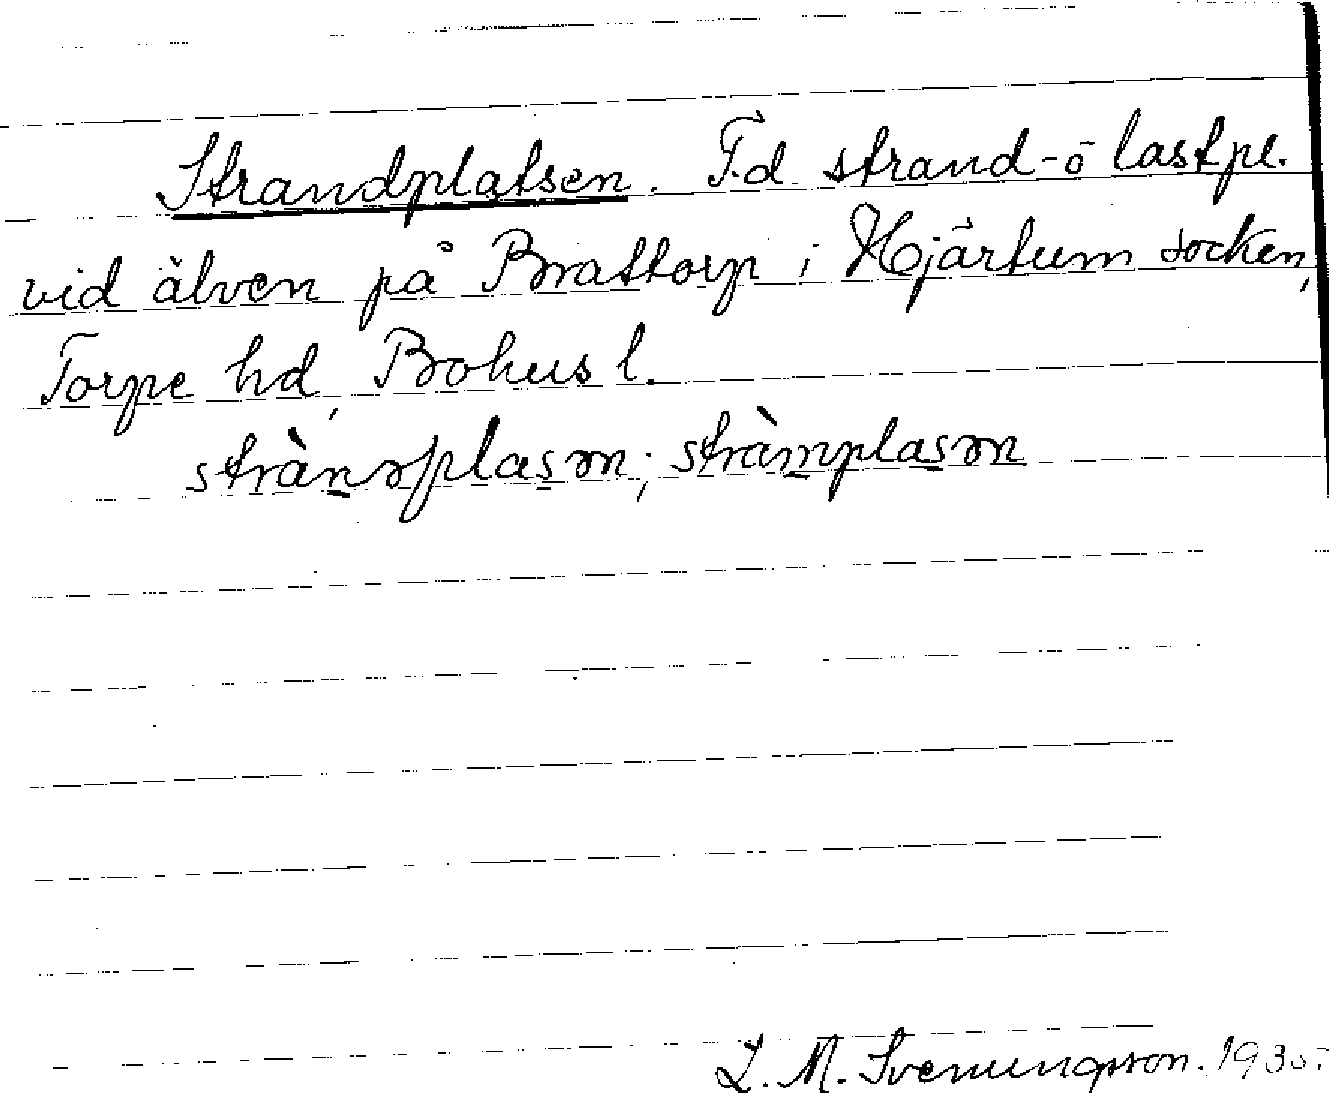 Strandplatsen. F.d. strand- o lastpl.
vid älven på Brattorp i Hjärtum socken,
Torpe hd, Bohus l.
strànəplasən; stràmplasən
L. M. Svenungsson. 1935.